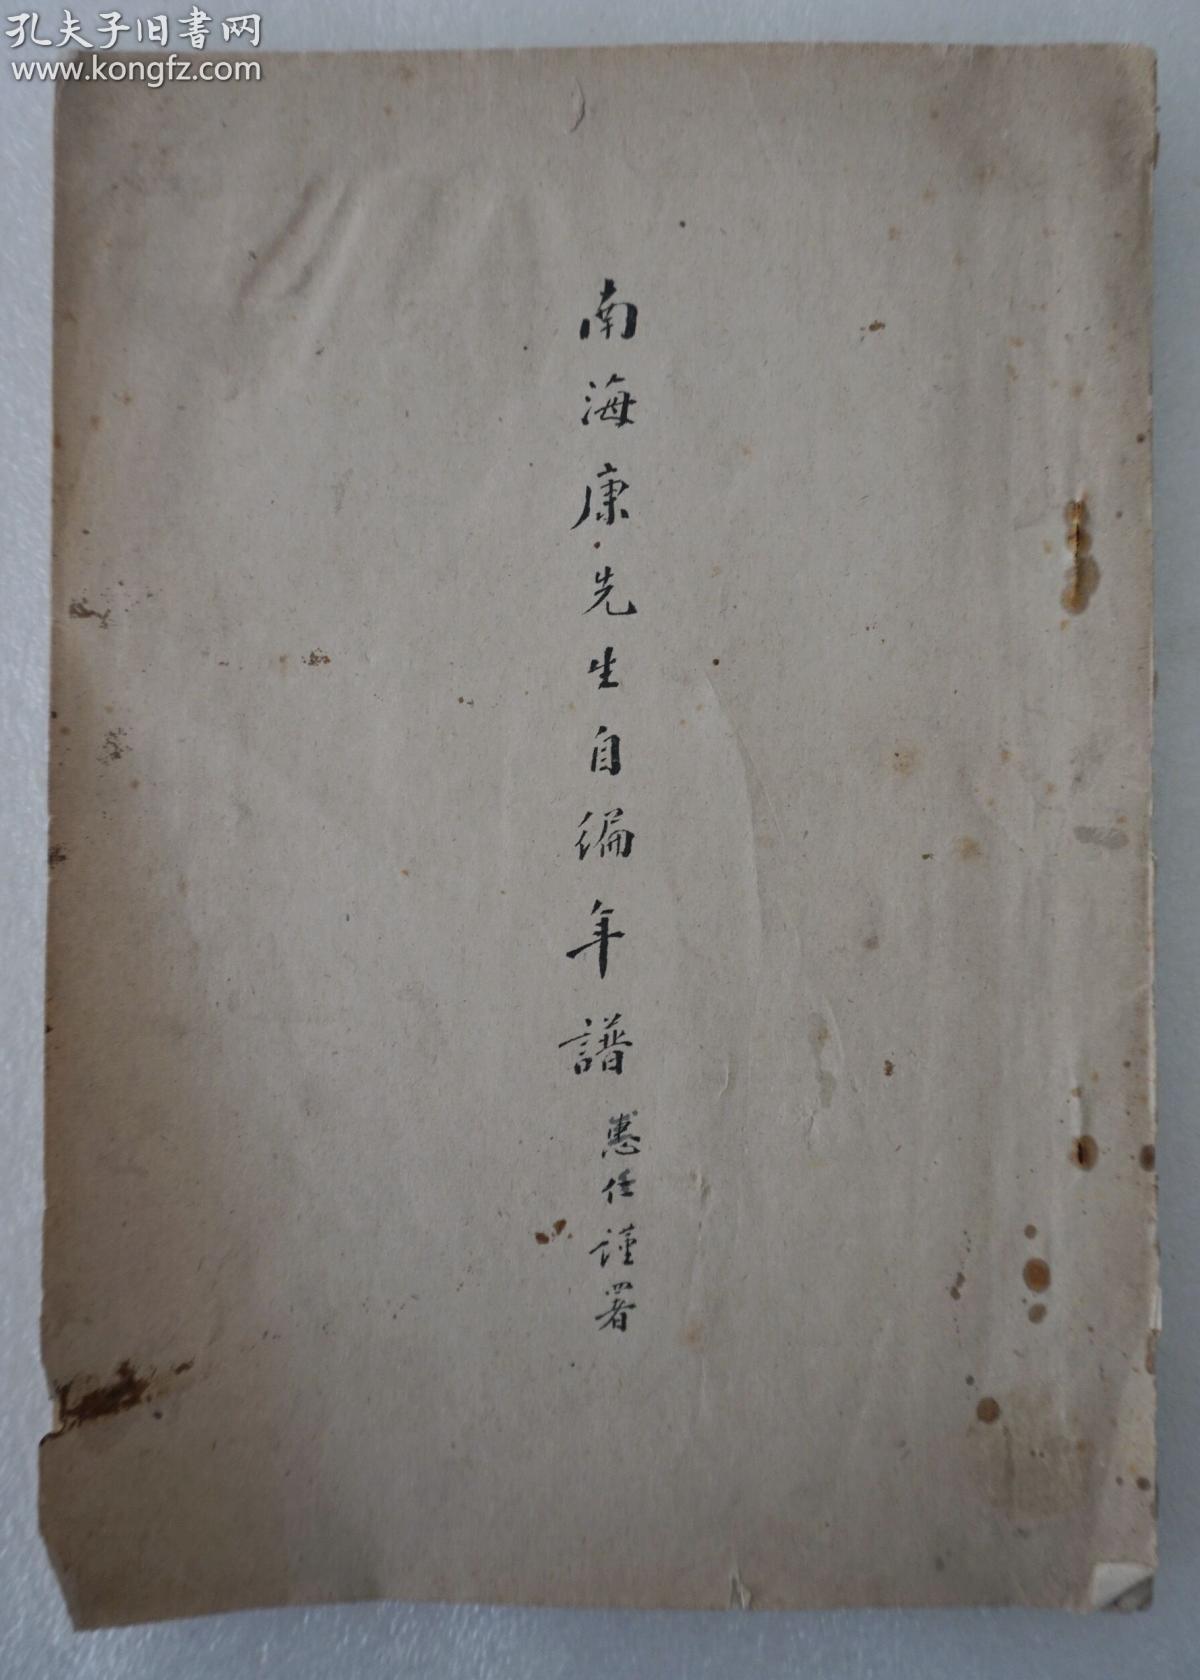 孔夫子旧書网
www.kongfz.com
南海康先生自编年譜
憲任謹署